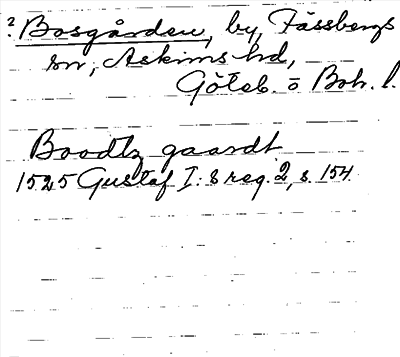 ? Bosgården, by, Fässbergs
sn, Askims hd,
Göteb. o Boh. l.
Boodtz gaardt
1525 Gustaf I:s reg. 2, s. 154.